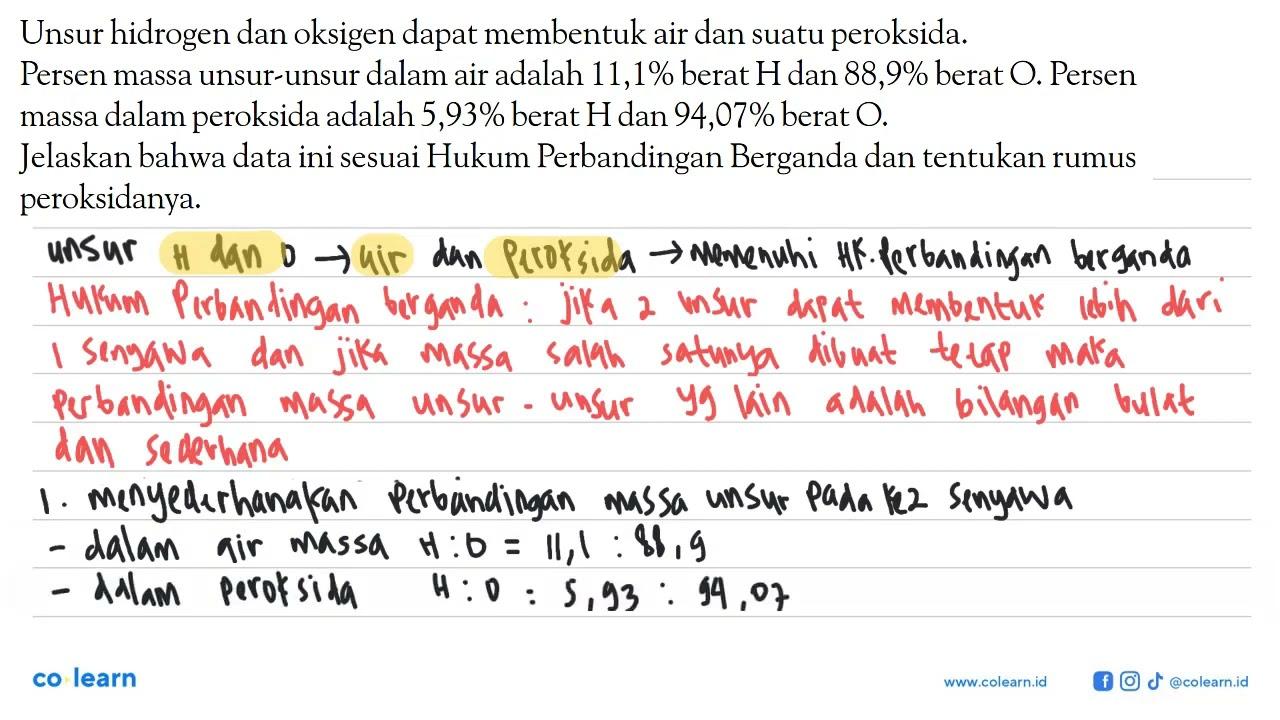 Unsur hidrogen dan oksigen dapat membentuk air dan suatu peroksida.
Persen massa unsur-unsur dalam air adalah 11,1% berat H dan 88,9% berat O. Persen
massa dalam peroksida adalah 5,93% berat H dan 94,07% berat O.
Jelaskan bahwa data ini sesuai Hukum Perbandingan Berganda dan tentukan rumus
peroksidanya.
unsur H dan O → air dan Peroksida → memenuhi HK. Perbandingan berganda
Hukum Perbandingan berganda : jika 2 unsur dapat membentuk lebih dari
1 senyawa dan jika massa salah satunya dibuat tetap maka
Perbandingan massa unsur - unsur yg lain adalah bilangan bulat
dan sederhana
1. menyederhanakan Perbandingan massa unsur pada ke2 senyawa
- dalam air massa H : O = 11,1 : 88,9
- dalam peroksida H : O : 5,93 : 94,07
co learn
www.colearn.id @colearn.id